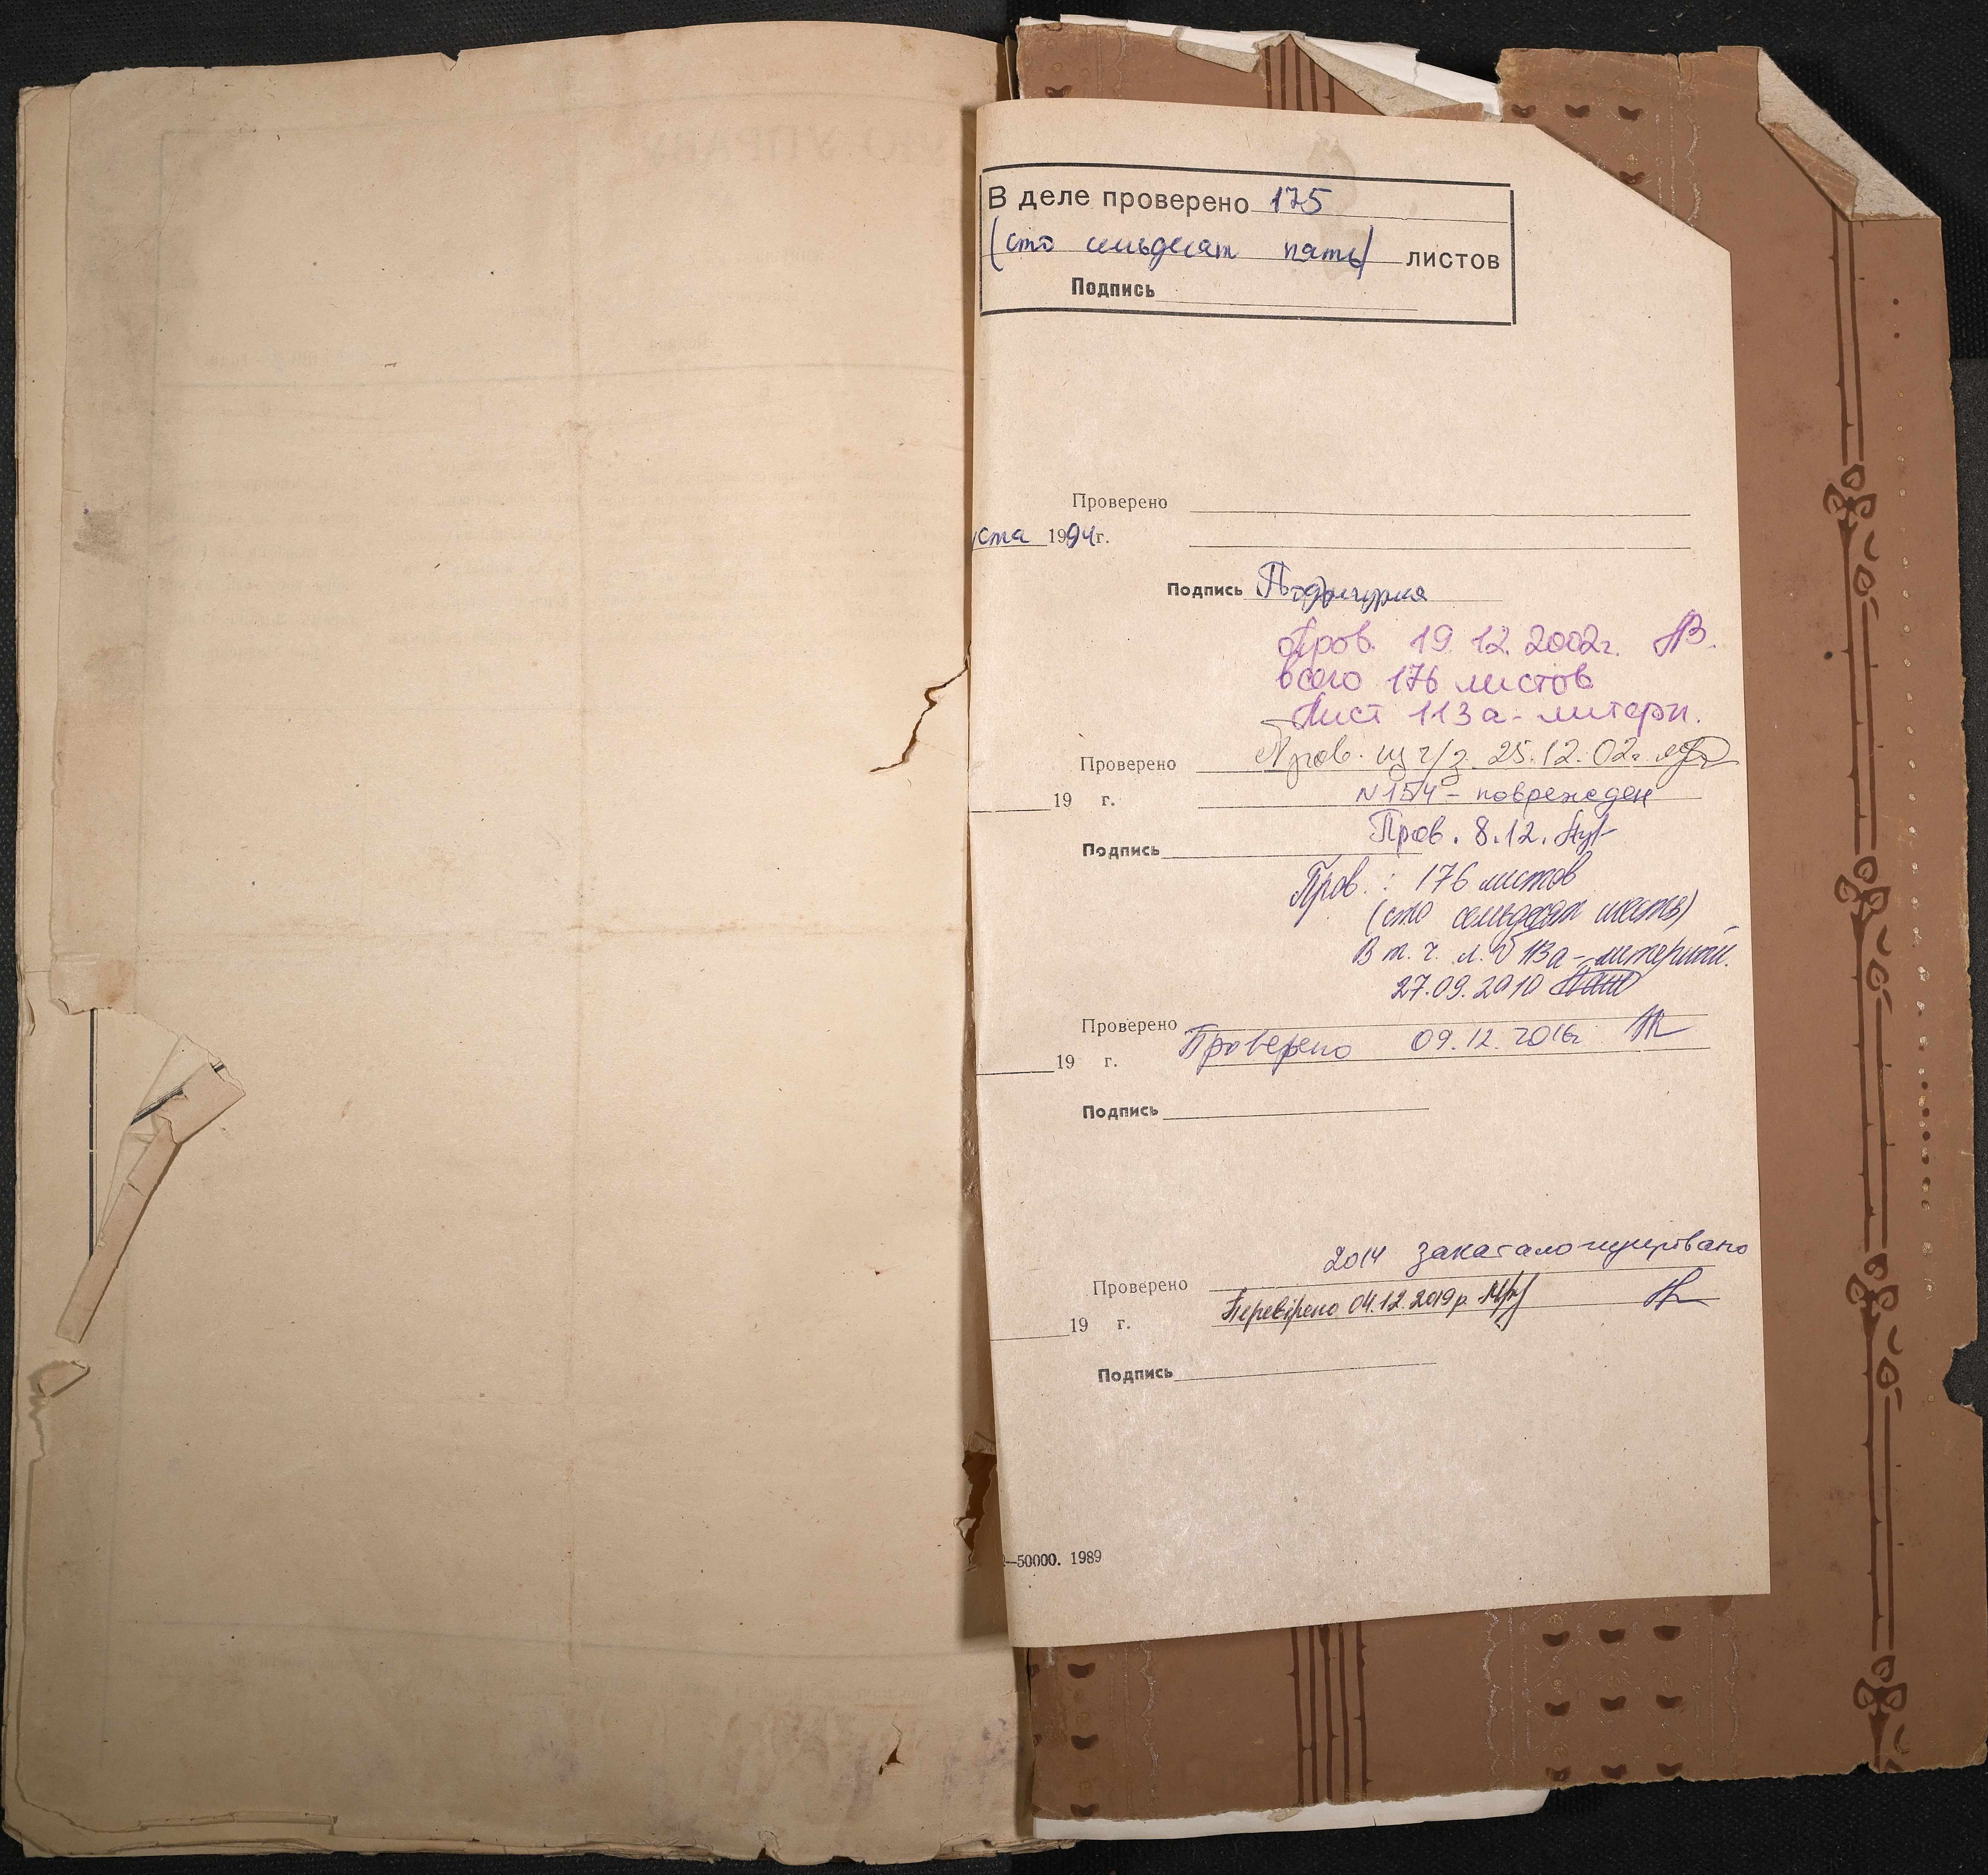 В деле проверено 175
(сто семьдесят пять) листов
Подпись
Проверено
ста 1994г.
Подпись
Пров. 19.12.2002г.
всего 176 листов
Лист 113а - литерн.
Проверено Пров. из ч/з. 25.12.02г.
19 г. N 154 - поврежден
Пров. 8.12.
Подпись
Пров.: 176 листов
(сто семьдесят шесть)
В т. ч. л. № 113а - литерный.
27.09.2010
Проверено
19 г. Проверено 09.12.2016г.
Подпись
2014 закаталогизировано
Проверено
Перевірено 04.12.2019р.
19 г.
Подпись
—50000. 1989